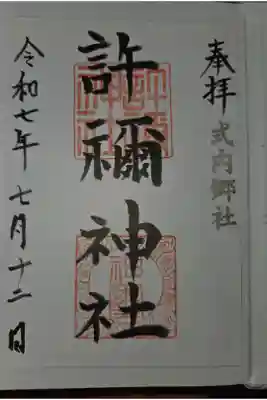 奉拝
式内郷社
許禰神社
令和七年七月十二日